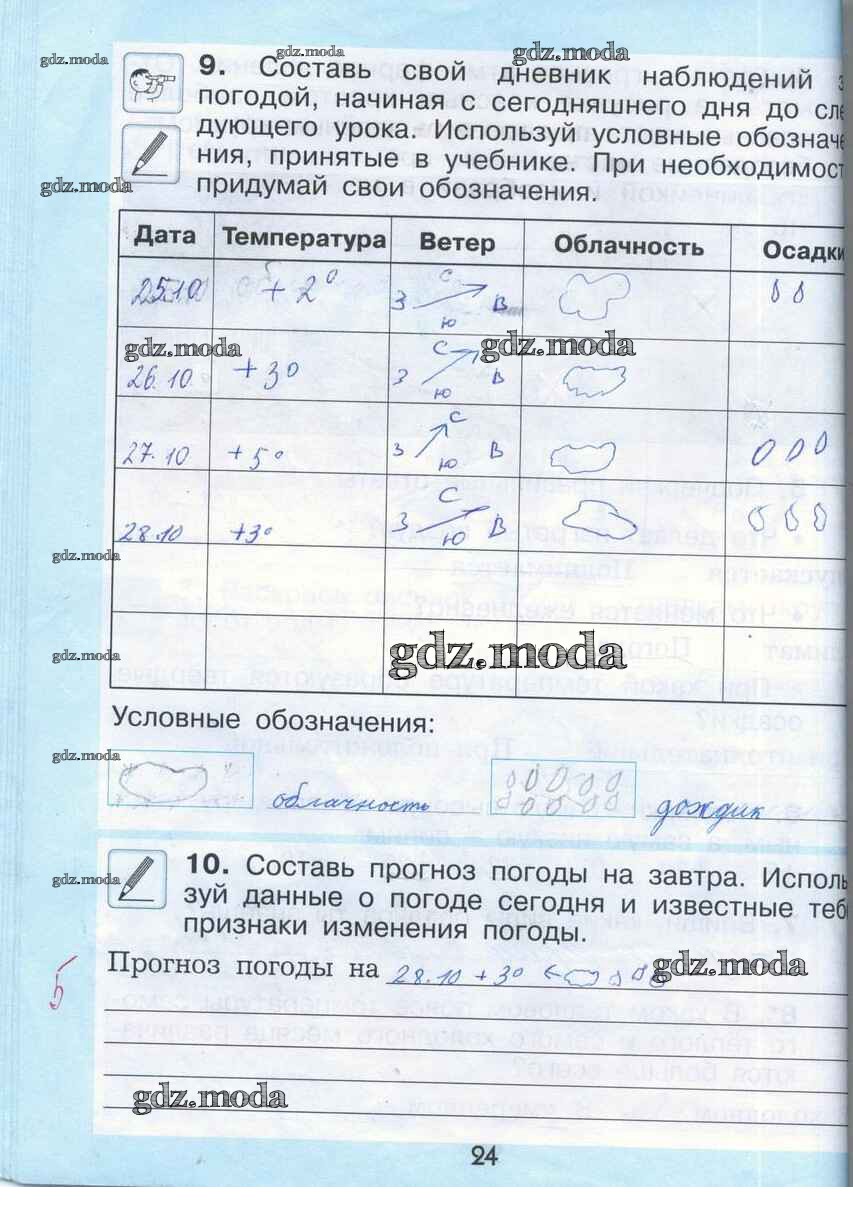 gdz.moda gdz.moda gdz.moda
9. Составь свой дневник наблюдений з
погодой, начиная с сегодняшнего дня до сле
дующего урока. Используй условные обозначе
ния, принятые в учебнике. При необходимост
gdz.moda придумай свои обозначения.
Дата Температура Ветер Облачность Осадки
25.10 +2° С З В Ю
gdz.moda gdz.moda
26.10 +3° С З В Ю
27.10 +5° С З В Ю
28.10 +3° С З В Ю
gdz.moda
gdz.moda gdz.moda
Условные обозначения:
gdz.moda
облачность дождик
gdz.moda
10. Составь прогноз погоды на завтра. Исполь
зуй данные о погоде сегодня и известные теб
признаки изменения погоды.
Прогноз погоды на 28.10 +3° gdz.moda
5
gdz.moda
24